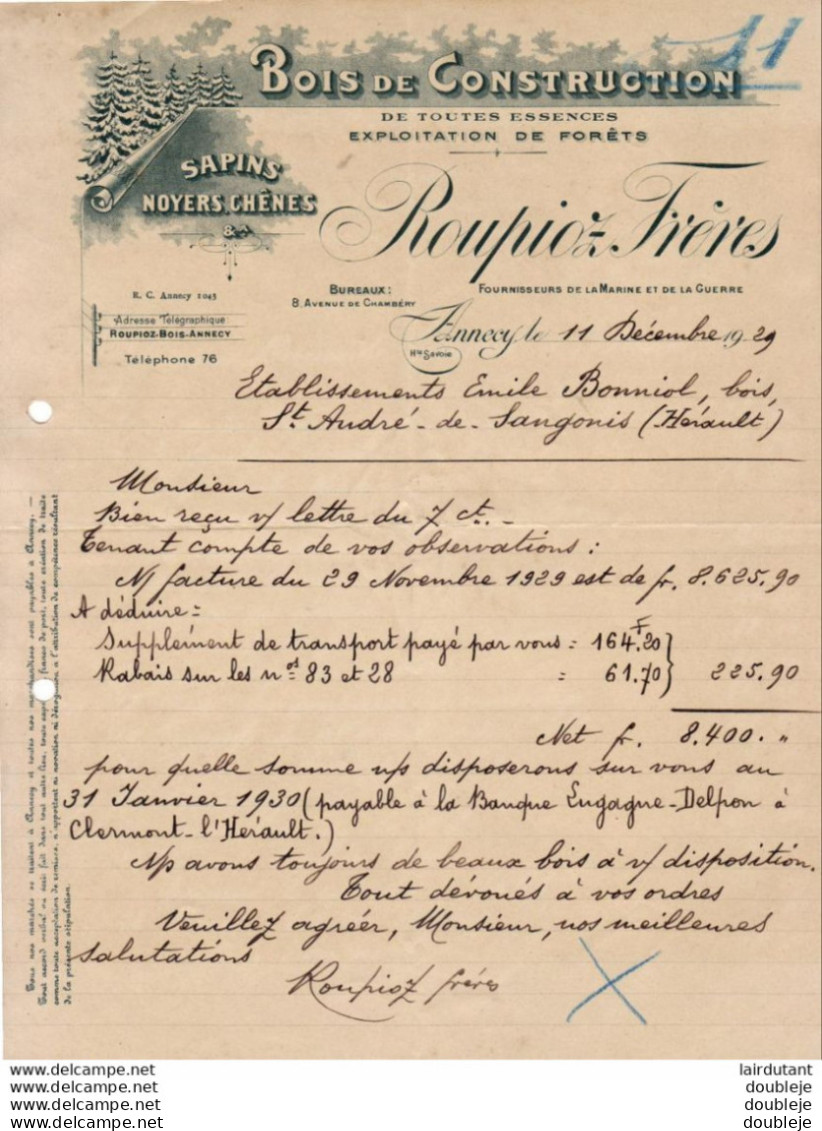 11
BOIS DE CONSTRUCTION
DE TOUTES ESSENCES
EXPLOITATION DE FORÊTS
SAPINS
NOYERS, CHÊNES
&
Roupioz Frères
R. C. Annecy 1045
BUREAUX:
8, AVENUE DE CHAMBÉRY
FOURNISSEURS DE LA MARINE ET DE LA GUERRE
Adresse Télégraphique
ROUPIOZ-BOIS-ANNECY
Téléphone 76
Annecy, le 11 Décembre 1929
Hte SAVOIE
Etablissements Emile Bonniol, bois,
St. André-de-Sangonis (Hérault)
Monsieur
Bien reçu v/ lettre du 7 ct. -
Tenant compte de vos observations :
N/ facture du 29 Novembre 1929 est de fr. 8.625.90
A déduire =
Supplément de transport payé par vous = 164.F20
Rabais sur les nos 83 et 28 = 61.70 } 225.90
Net fr. 8.400. "
pour quelle somme n/s disposerons sur vous au
31 Janvier 1930 (payable à la Banque Engagne-Delpon à
Clermont-l'Hérault.)
N/s avons toujours de beaux bois à v/ disposition.
Tout dévoués à vos ordres
Veuillez agréer, Monsieur, nos meilleures
salutations
Roupioz frères
Tous nos marchés se traitent à Annecy et toutes nos marchandises sont payables à Annecy. —
de la présente stipulation.
www.delcampe.net
www.delcampe.net
www.delcampe.net
www.delcampe.net
lairdutant
doubleje
doubleje
doubleje